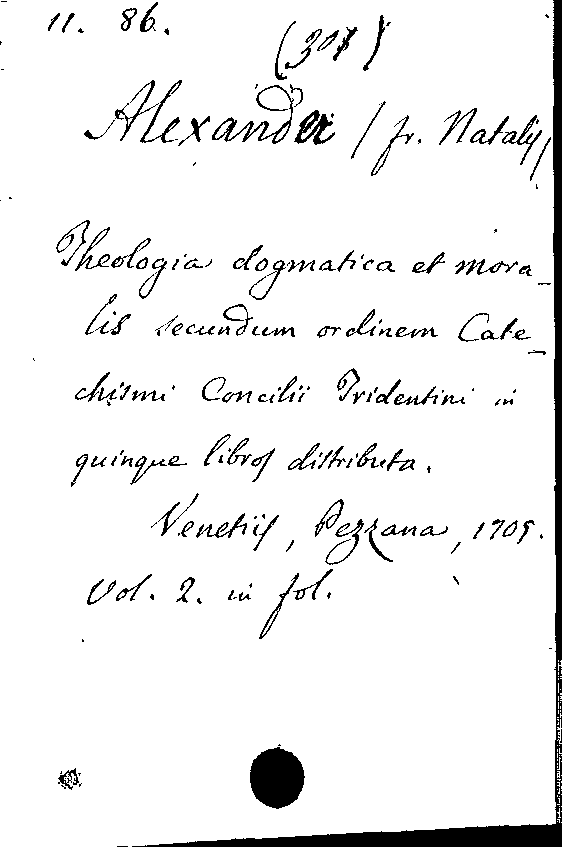 11. 86.
(308)
Alexander / fr. Natalis /
Theologia dogmatica et mora-
lis secundum ordinem Cate-
chismi Concilii Tridentini in
quinque libros distributa.
Venetiis, Pezzana, 1705.
Vol. 2. in fol.